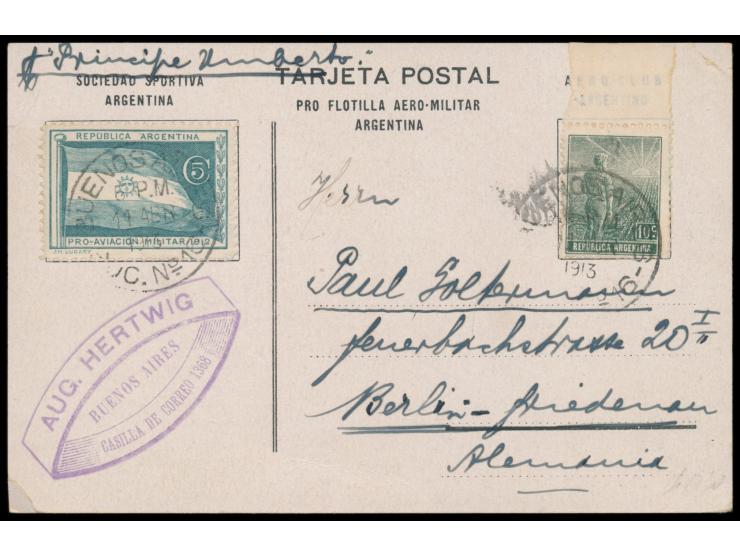 p "Principe Umberto."
SOCIEDAD SPORTIVA
ARGENTINA
TARJETA POSTAL
PRO FLOTILLA AERO-MILITAR
ARGENTINA
A
AERO CLUB
ARGENTINO
REPÚBLICA ARGENTINA
5 C
PRO-AVIACIÓN MILITAR 1912
BUENOS A
6 P.M.
SUC. No 16
10 c
REPUBLICA ARGENTINA
1913
Herrn
Paul Goltermann
Feuerbachstrasse 20 I
Berlin-Friedenau
Alemania
AUG. HERTWIG
BUENOS AIRES
CASILLA DE CORREO 1368